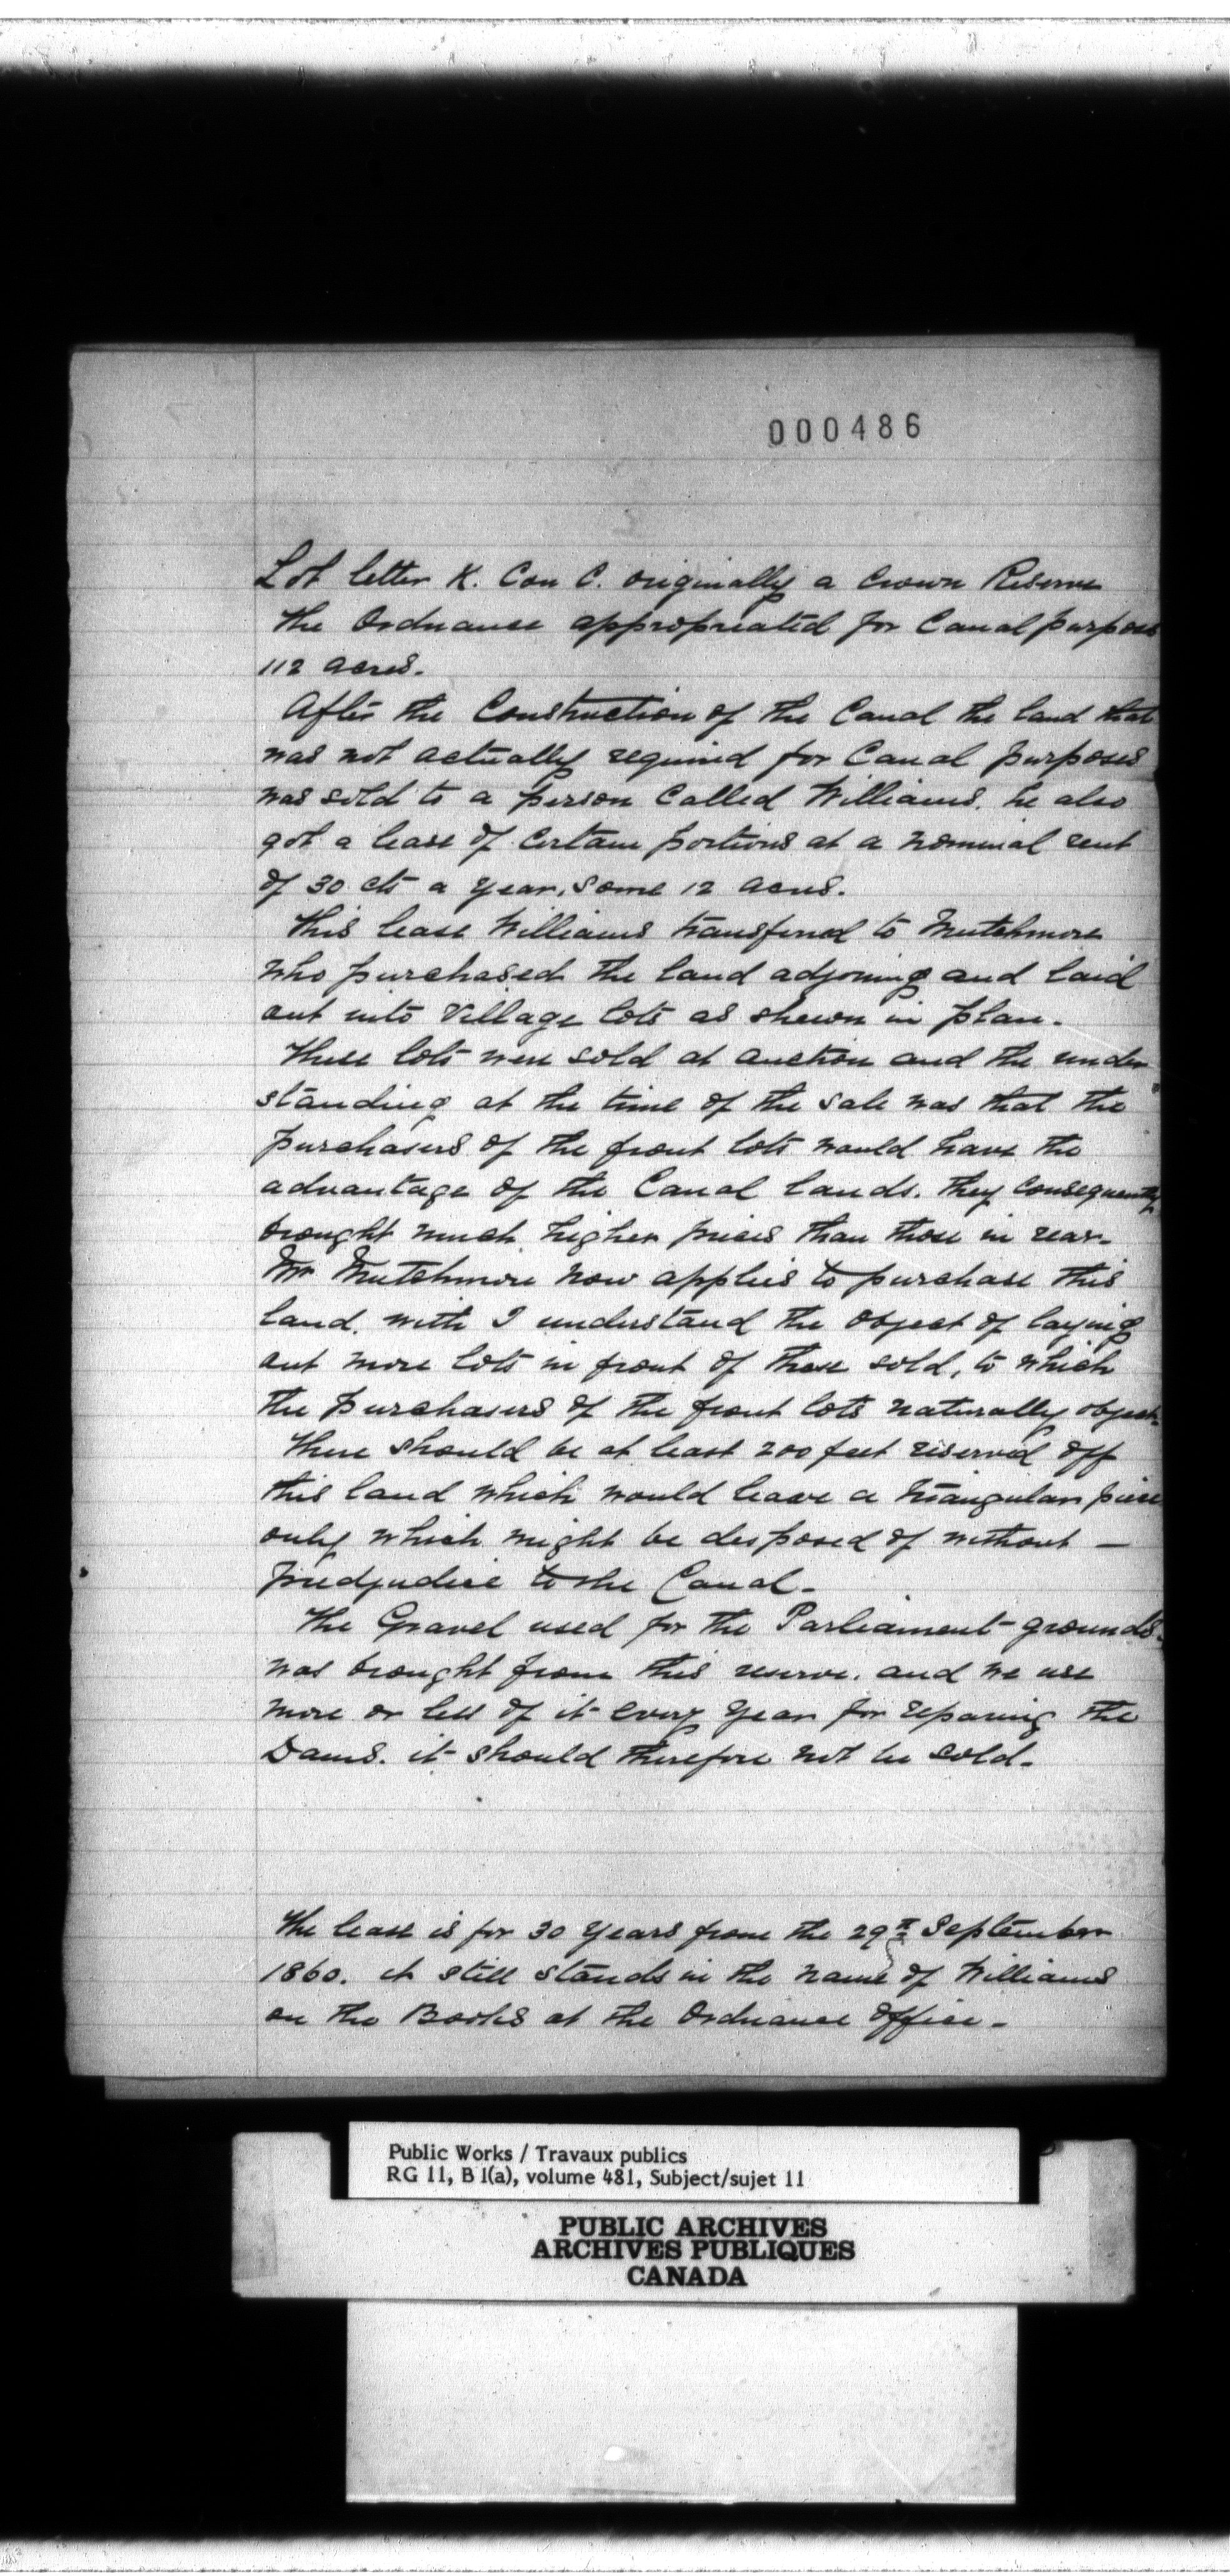 000486
Lot letter K. Con C. originally a Crown Reserve
The Ordnance appropriated for Canal purposes
112 acres.
After the Construction of the Canal the land that
was not actually required for Canal purposes
was sold to a person Called Williams. he also
got a lease of Certain portions at a nominal rent
of 30 cts a year, some 12 acres.
This lease Williams transferred to Mutchmore
who purchased the land adjoining and laid
out into Village lots as shewn in plan.
These lots were sold at auction and the under
standing at the time of the sale was that the
purchasers of the front lots would have the
advantage of the Canal lands. they consequently
brought much higher prices than those in rear.
Mr Mutchmore now applies to purchase this
land. with I understand the object of laying
out more lots in front of those sold, to which
the purchasers of the front lots naturally object.
There should be at least 200 feet reserved off
this land which would leave a triangular piece
only which might be disposed of without —
predjudice to the Canal.
The Gravel used for the Parliament grounds
was brought from this reserve. and we use
more or less of it every year for reparing the
Dams. it should therefore not be sold.
The lease is for 30 years from the 29th September
1860. it still stands in the name of Williams
on the Books at the Ordnance Office.
Public Works / Travaux publics
RG 11, B 1(a), volume 481, Subject/sujet 11
PUBLIC ARCHIVES
ARCHIVES PUBLIQUES
CANADA